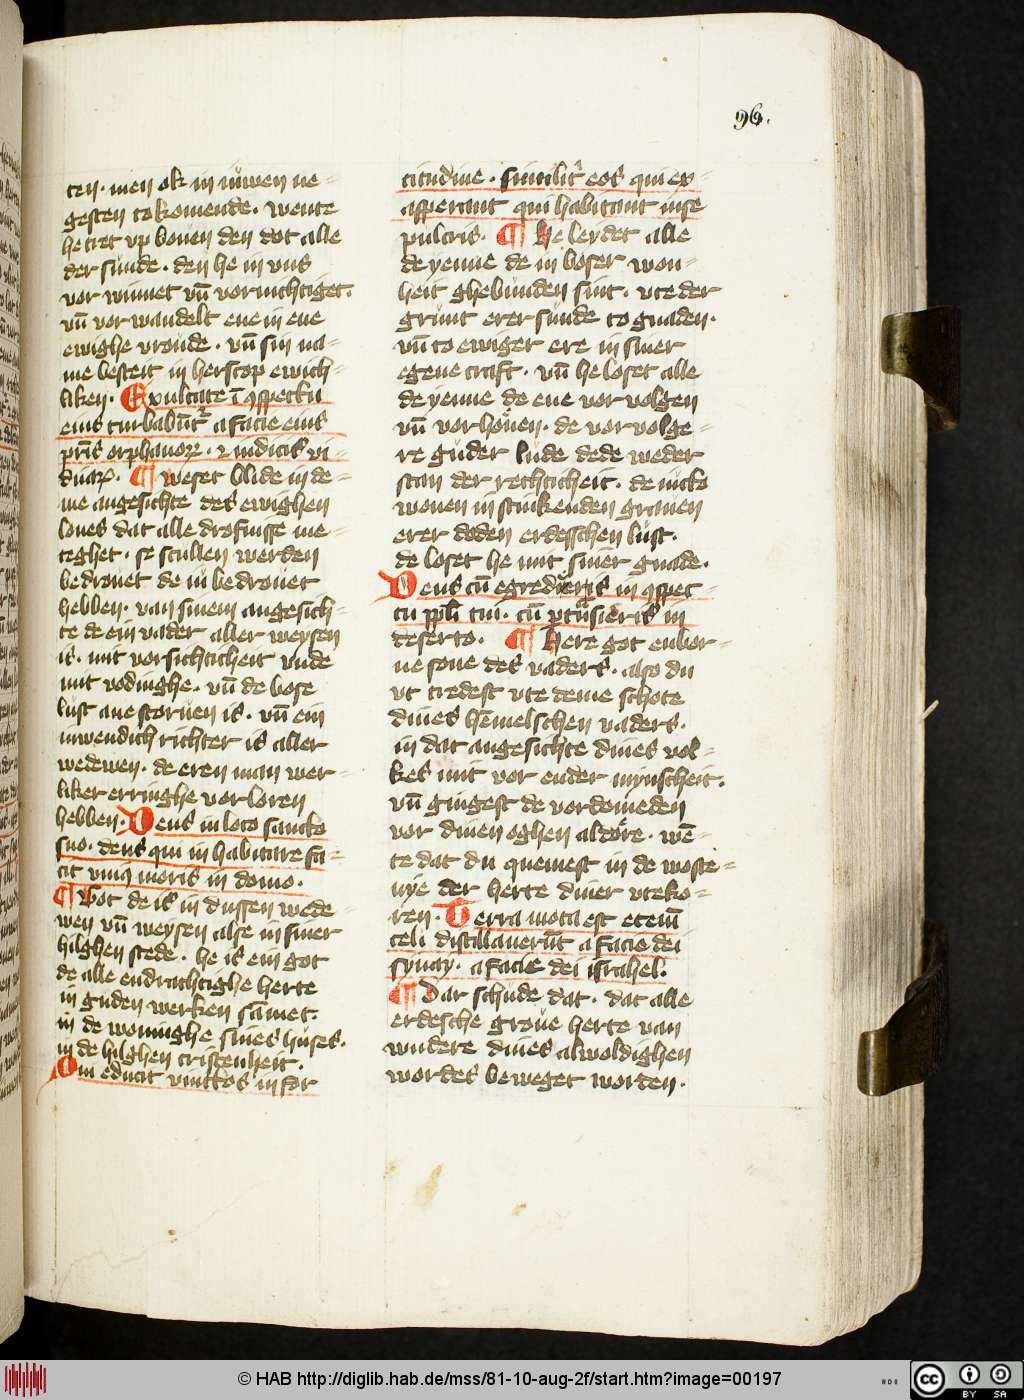 96.
ten. men ok in iuwen ne-
gesten to komende. wente
he tret vp bouen den dot alle
der sunde. den he in vns
vor winnet vn̄ vornichtiget.
vn̄ vor wandelt ene in ene
ewighe vroude. vn̄ sin na-
me besteit in herscop ewich-
liken. Exultate ī ɔspectu
eius turbabūt̉ a facie eius
pr̄is orphanoꝝ. ⁊ iudicis vi-
duaꝝ. ¶ weset blide in de-
me angesichte des ewighen
loues dat alle drofnisse we-
cghet. se scullen werden
bedrouet de iu bedrouet
hebben. van sinem angesich-
te de ein vader aller weysen
is. mit vorsichticheit vnde
mit vodinghe. vn̄ de bose
lust ane storuen is. vn̄ ein
inwendich richter is aller
wedewen. de eren man wer-
liker erringhe vor loren
hebben. Deus in loco sancto
suo. deus qui in habitare fa-
cit vniꝰ moris in domo.
¶ Got de is in dussen wede-
wen vn̄ weysen alse in siner
hilghen stede. he is ein got
de alle endrachtighe herte
in guden werken samet.
in de woninghe sines huses.
in de hilghen cristenheit.
Qui educit vinctos in for
titudine. similit̉ eos qui ex-
asperant qui habitant inse
pulcris. ¶ He leydet alle
de yenne de in boser won-
heit ghebunden sint. vte der
grunt erer sunde to gnaden.
vn̄ to ewiger ere in siner
egene craft. vn̄ he loset alle
de yenne de ene vor volgen
vn̄ vor honen. de vor volge-
re guder lude dede weder
stan der rechticheit. de nicko
wonen in stinkenden grauen
erer doden erdesschen lust.
de loset he mit siner gnade.
Deus cū egredieris in ɔspec-
tu pp̄li tui. cū ꝑtūsieris in
deserto. ¶ Here got enbor-
ne sone des vaders. also du
vt tredest vte deme schote
dines hēmelschen vaders.
in dat angesichte dines vol-
kes mit vor ender mynscheit.
vn̄ gingest de vordomeden
vor dinen oghen aldore. wē-
te dat du quemest in de woste-
nye der herte diner vteko-
ren. Terra mota est eteni̅
celi distillauerūt a facie dei
synay. a facie dei israhel.
¶ Dar schude dat. dat alle
erdesche groue herte van
wndere dines alwoldighen
wordes beweget worden.
© HAB http://diglib.hab.de/mss/81-10-aug-2f/start.htm?image=00197
HAB
cc BY SA